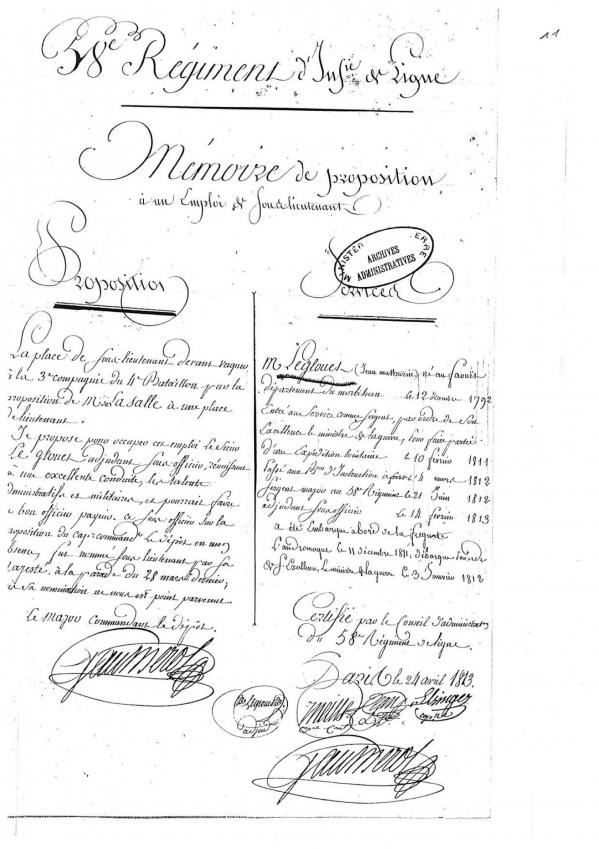 11
58e Régiment d'Infie de Ligne
Mémoire de proposition
à un Emploi de Sous-lieutenant
MINISTÈRE GUERRE
ARCHIVES
ADMINISTRATIVES
Proposition
La place de sous-lieutenant devant vaquer
à la 3e compagnie du 4e Bataillon par la
proposition de Mr Lasalle à une place
de lieutenant.
Je propose pour occuper cet emploi le Sieur
Le glouet adjudant sous officier, réunissant
à une excellente conduite les talents
administratifs et militaires et pourrait faire
bon officier payeur. ce sous officier sur la
proposition du Capne commandt le Dépôt en mon
absence, fut nommé sous lieutenant par sa
Majesté, à la parade du 28 mars dernier,
sa nomination ne nous est point parvenue.
Le Major Commandant le dépôt.
Services
Mr Leglouet (Jean mathurin) né au faouët
département du morbihan le 12 décembre 1792
Entré au Service comme Sergent, par ordre de Son
Excellence le ministre de la guerre, pour faire partie
d'une Expédition le 10 février 1811
passé aux d'Instruction à le 4 mars 1812
Sergent major au 58e Régiment le 21 Juin 1812
adjudant sous officier le 14 février 1813
a été Embarqué abord de la frégate
L'andromaque le 11 décembre 1811, débarqué par ordre
de S. Excellence le ministre de la guerre le 3 Janvier 1812
Certifié par le Conseil d'administration
du 58me Régiment de ligne.
Paris le 24 avril 1813.